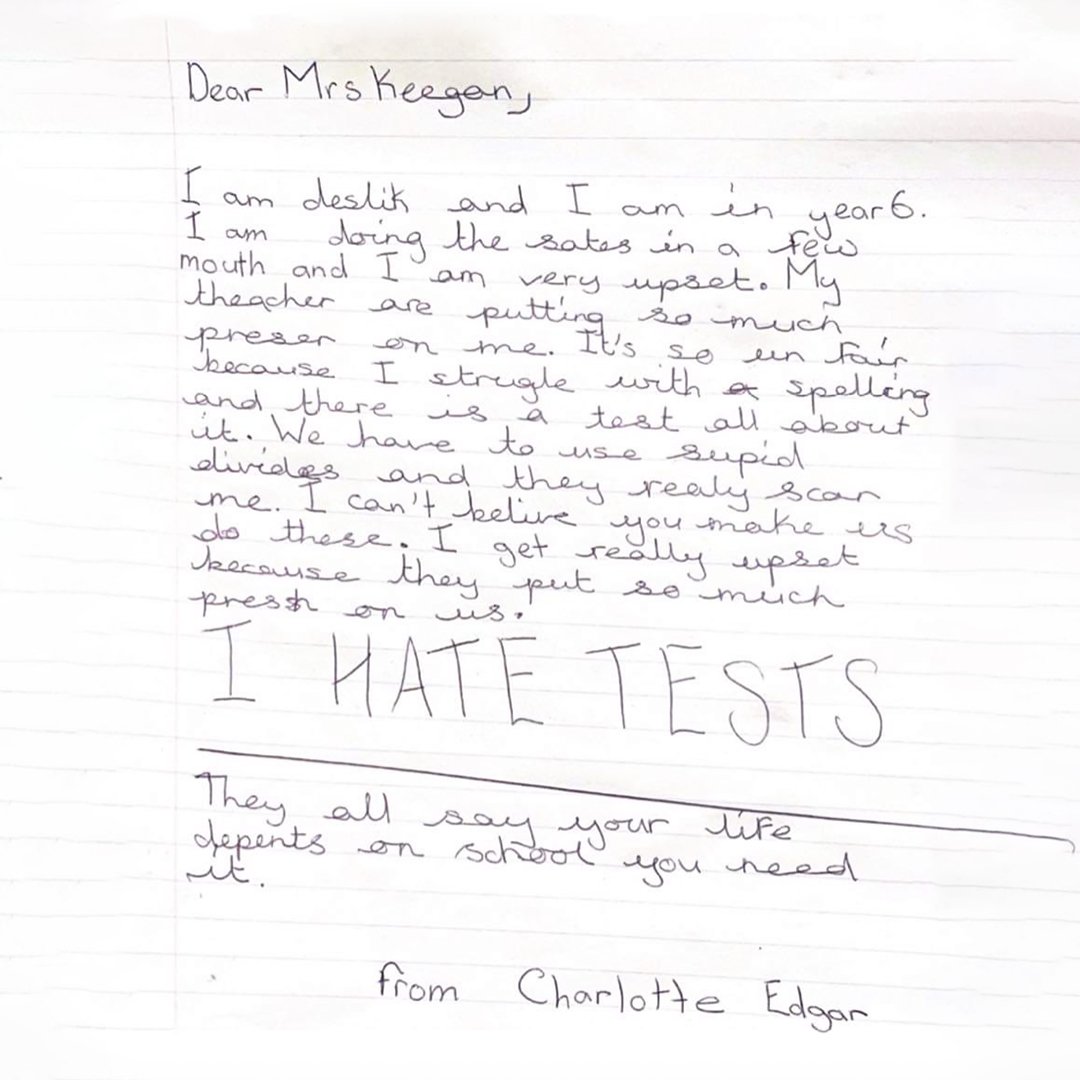 Dear Mrs Keegan,
I am deslik and I am in year 6.
I am doing the sates in a few
mouth and I am very upset. My
theacher are putting so much
preser on me. It's so un fair
because I strugle with a spelling
and there is a test all about
it. We have to use supid
divides and they realy scar
me. I can't belive you make us
do these. I get really upset
because they put so much
pressh on us.
I HATE TESTS
They all say your life
depents on school you need
it.
from Charlotte Edgar